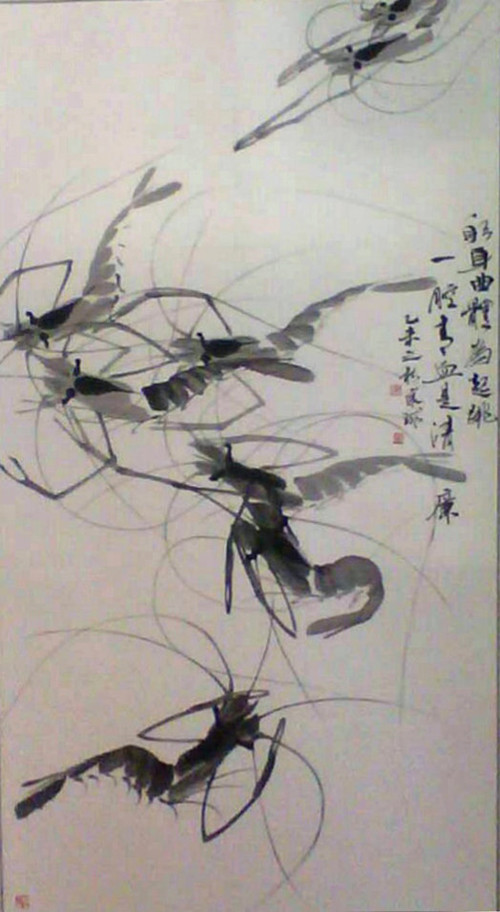 躬身曲體為起跳
一腔青血是清廉
乙未之秋